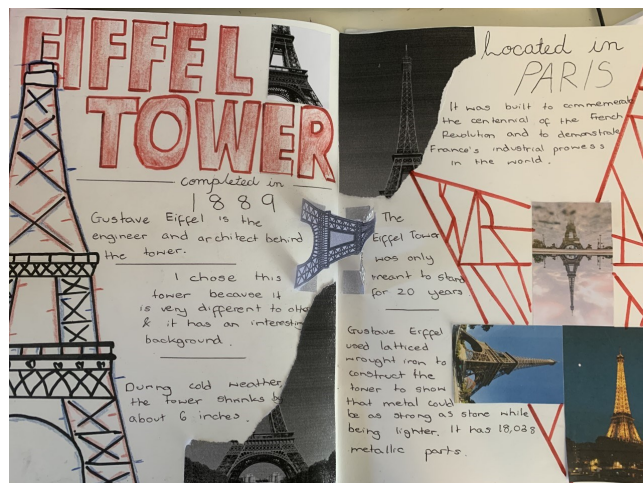 EIFFEL
TOWER
completed in
1889
Gustave Eiffel is the
engineer and architect behind
the tower.
I chose this
tower because it
is very different to othe
& it has an interestin
background.
During cold weather,
the tower shrinks b
about 6 inches.
Located in
PARIS
It was built to commemerate
the centennial of the French
Revolution and to demonstrate
France's industrial prowess
in the world.
The
Eiffel Tower
was only
meant to stand
for 20 years
Gustave Eiffel
used latticed
wrought iron to
construct the
tower to show
that metal could
be as strong as stone while
being lighter. It has 18,038
metallic parts.